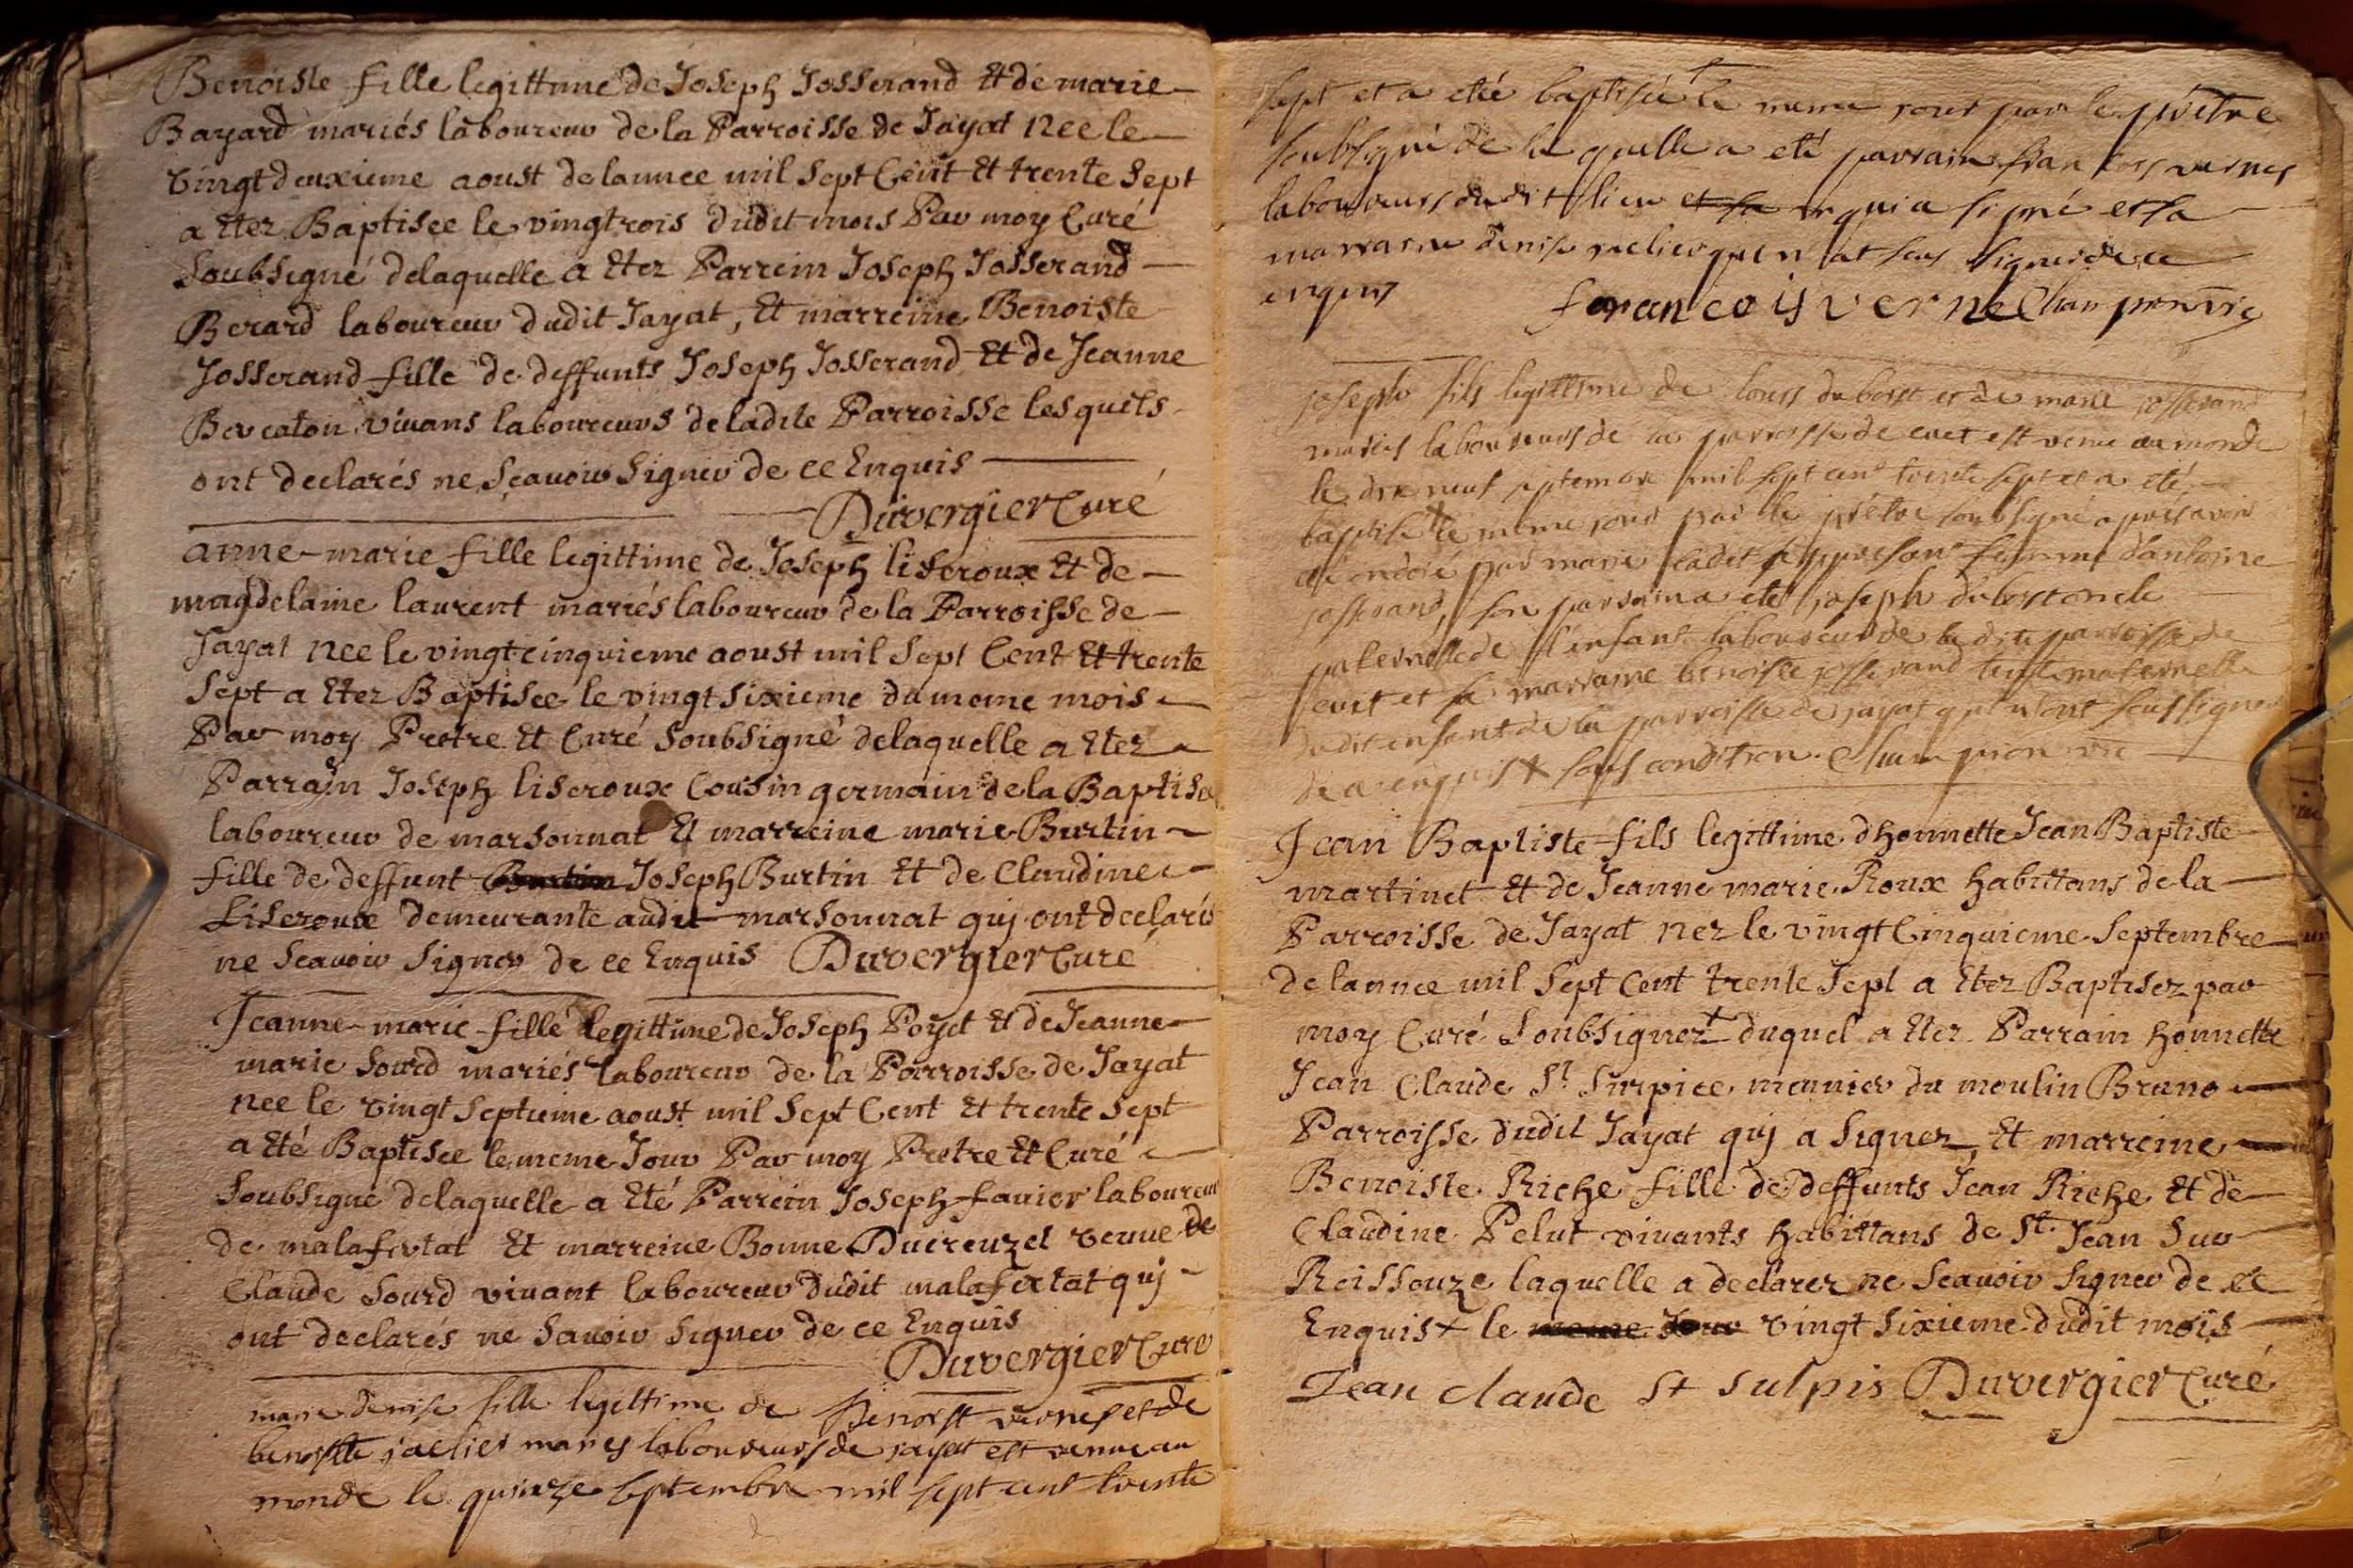 Benoiste fille legittime de Joseph Josserand Et de marie
Bayard mariés laboureur de la Parroisse de Jayat née le
vingt deuxieme aoust de lannee mil Sept Cent Et trente Sept
a Etez Baptisee le vingtrois dudit mois Par moy Curé
Soubsigné delaquelle a Etez Parrein Joseph Josserand
Berard laboureur dudit Jayat, Et marreine Benoiste
Josserand fille de deffunts Joseph Josserand Et de Jeanne
vivans laboureurs de ladite Parroisse lesquels
ont declarés ne Scavoir Signer de ce Enquis
Duvergier Curé
anne-marie fille legittime de Joseph liseroux Et de
magdelaine laurent mariés laboureur de la Parroisse de
Jayat née le vingt cinquieme aoust mil Sept Cent Et trente
Sept a Etez Baptisee le vingt sixieme du meme mois
Par moy Pretre Et Curé Soubsigné delaquelle a Etez
Parrain Joseph liseroux Cousin germain de la Baptisee
laboureur de marsonnat Et marreine marie Burtin
fille de deffunt Joseph Burtin Et de Claudine
Liseroux demeurante audit marsonnat quj ont declarés
ne Scavoir Signer de ce Enquis Duvergier Curé
Jeanne-marie fille legittime de Joseph Poyet Et de Jeanne
marie Sourd mariés laboureur de la Parroisse de Jayat
nee le vingt Septieme aoust mil Sept Cent Et trente Sept
a Eté Baptisee le meme Jour Par moy Pretre Et Curé
Soubsigné delaquelle a Eté Parrein Joseph favier laboureur
de malafertat Et marreine Bonne Ducreuzet veuve de
Claude Sourd vivant laboureur dudit malafertat quj
ont declarés ne Savoir Signer de ce Enquis
Duvergier Curé
marie denise fille legittime de Benoist vernes et de
benoitte mariés laboureurs de jayat est venue au
monde le quinze septembre mil sept cent trente
sept et a eté baptisée le meme jour par le prêtre
soubsigné de laquelle a eté parrain francois vernes
laboureurs dudit lieu et sa qui a signé et sa
marraine denise qui n'at seu signer de ce
enquis francois verne Champion vic
joseph fils legittime de louis dubost et de marie josserand
mariés laboureurs de la parroisse de cuet est venu au monde
le dix neuf septembre mil sept cent trente sept et a eté
baptisé le meme jour par le prêtre soubsigné apres avoir
eté ondoié par marie cadet femme d'antoine
josserand, son parrain a eté joseph dubost oncle
paternelle de l'enfant laboureur de la dite parroisse de
cuet et sa marraine benoiste josserand tante maternelle
dudit enfant de la parroisse de jayat qui n'ont seu signer
de ce enquis + sous condition. Champion vic
Jean Baptiste fils legittime dhonnette Jean Baptiste
martinet Et de Jeanne marie Roux habittans de la
Parroisse de Jayat nez le vingt Cinquieme Septembre
de lannee mil Sept Cent trente Sept a Etez Baptisez par
moy Curé Soubsignez + duquel a Etez Parrain honnette
Jean Claude St Surpice meunier du moulin Bruno
Parroisse dudit Jayat quj a Signez, Et marreine
Benoiste Riche fille de deffunts Jean Riche Et de
Claudine Pelut vivants habittans de St. Jean Sur
Reissouze laquelle a declarez ne Scavoir Signer de ce
Enquis + le meme Jour vingt sixieme dudit mois
Jean claude St sulpis Duvergier Curé